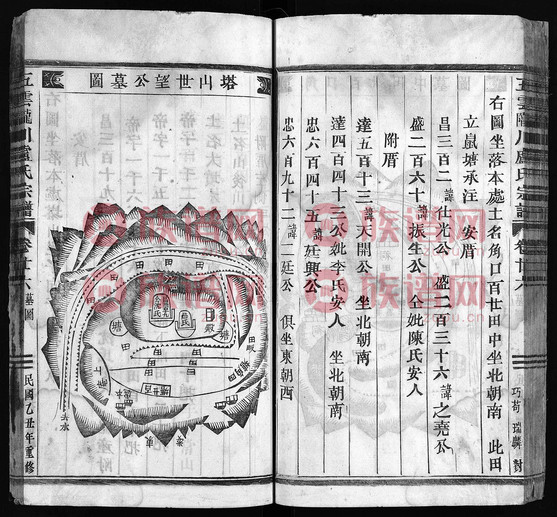 五雲龍川盧氏宗譜 卷廿六
巧荀 瑞麟 對
右圖坐落本處土名角口百廿田中坐北朝南 此田
立鼠墟承注 安厝
昌三百二 諱仕光公 盛二百三十六 諱之堯公
盛二百六十 諱振生公 仝妣陳氏安人
附厝
達五百十三 諱天開公 坐北朝南
達四百四十三公妣李氏安人 坐北朝南
忠六百四十五 諱廷興公
忠六百九十二 諱二廷公 俱坐東朝西
塔山世望公墓圖
田
塘
五雲龍川盧氏宗譜 卷廿六 墓圖
民國乙丑年重修
族谱网
zupu.cn